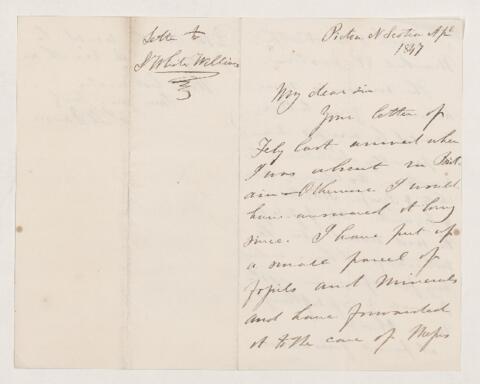 Letter to
J White Williams
Pictou N Scotia Apl
1847
My dear sir
Your letter of
Feby last arrived when
I was absent in Brit-
ain - Otherwise I would
have answered it long
since. I have put up
a small parcel of
fossils and minerals
and have forwarded
it to the care of Messrs